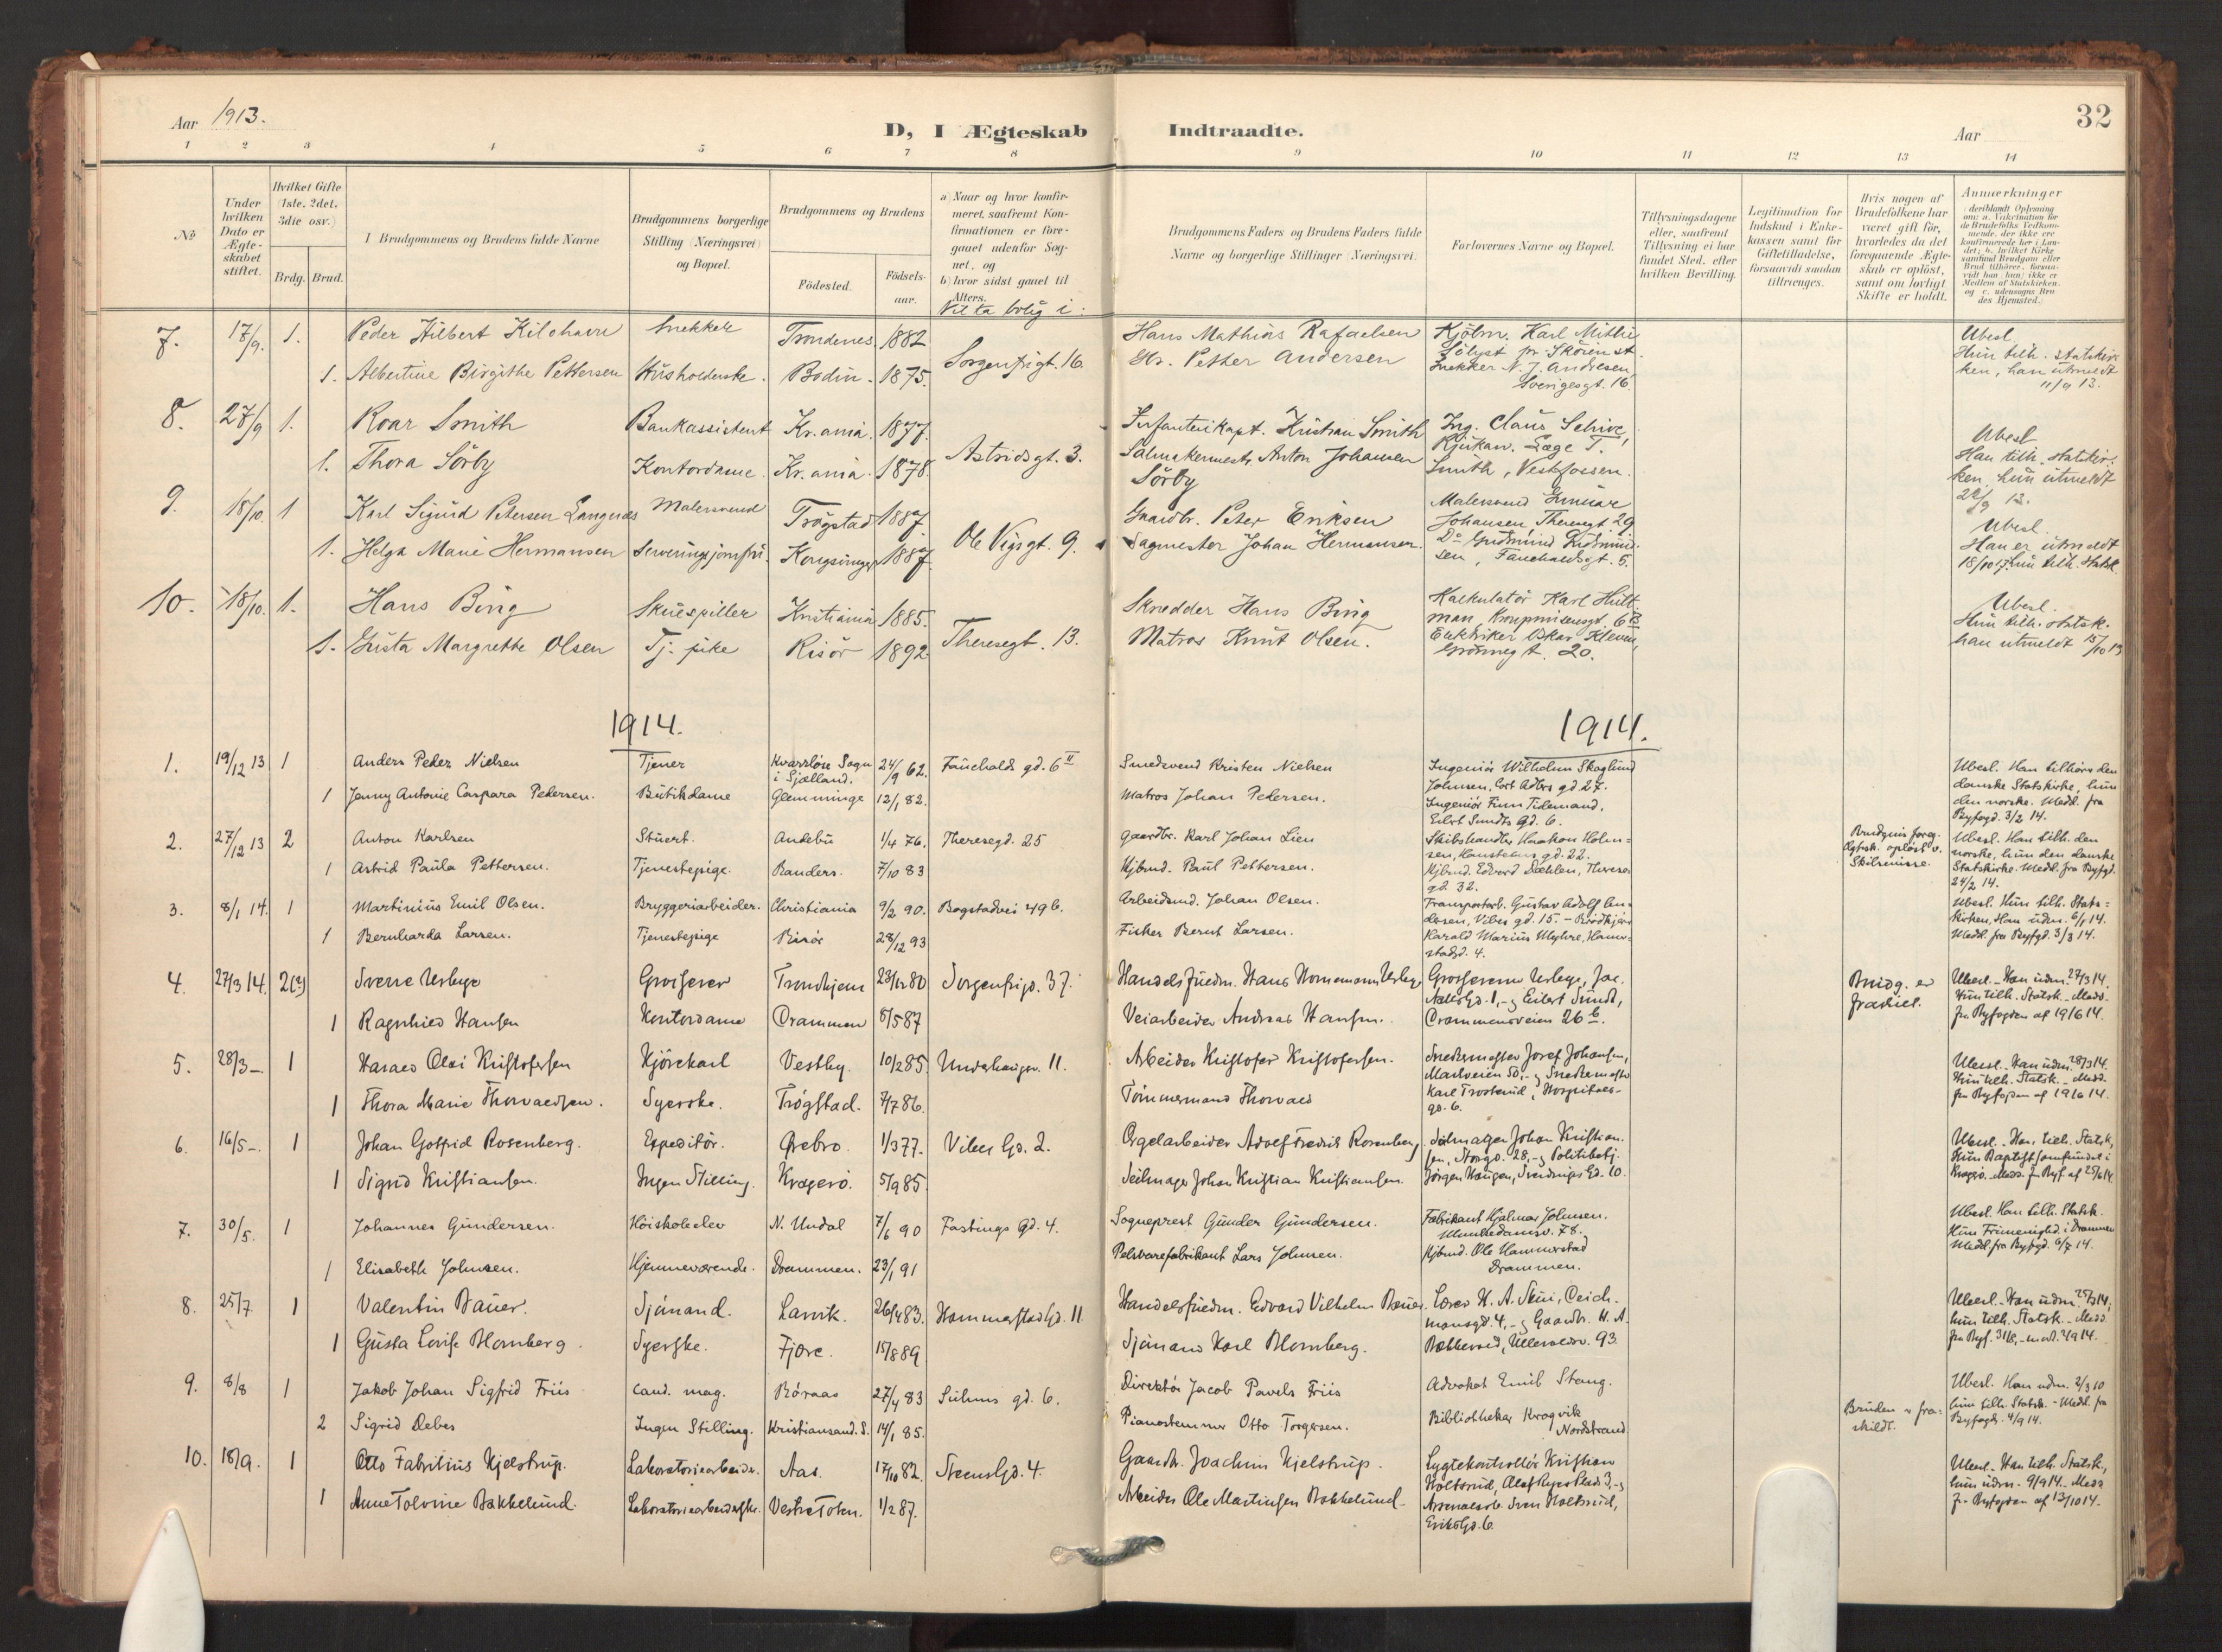 Aar 1913.
D, I Ægteskab Indtraadte.
Aar
32
1 2 3 4 5 6 7 8 9 10 11 12 13 14
No
Under hvilken Dato er Ægteskabet stiftet.
Hvilket Gifte (1ste, 2det, 3die osv.)
Brdg. Brud.
I Brudgommens og Brudens fulde Navne
Brudgommens borgerlige Stilling (Næringsvei) og Bopæl.
Brudgommens og Brudens
Födested.
Födselsaar.
a) Naar og hvor konfirmeret, saafremt Konfirmationen er foregaaet udenfor Sognet, og
b) hvor sidst gaaet til Alters.
Vil ta bolig i:
Brudgommens Faders og Brudens Faders fulde Navne og borgerlige Stillinger (Næringsvei).
Forlovernes Navne og Bopæl.
Tillysningsdagene eller, saafremt Tillysning ei har fundet Sted, efter hvilken Bevilling.
Legitimation for Indskud i Enkekassen samt for Giftetilladelse, forsaavidt saadan tiltrænges.
Hvis nogen af Brudefolkene har været gift för, hvorledes da det foregaaende Ægteskab er oplöst, samt om lovligt Skifte er holdt.
Anmerkninger
7. 17/9. 1. Peder Hilbert Snekker Trondenes 1882 Sorgenfrigt. 16. Hans Mathias Rafaelsen Kjöbm. Karl
1. Albertine Birgithe Pettersen Husholderske. Bodin. 1875. Petter Andersen Snekker N. J. Andresen Sverigesgt. 16.
Ubesl. Hun tilh. statskirken, han utmeldt 11/9 13.
8. 27/9 1. Roar Smith Bankassistent Kr.ania. 1877. Astridsgt. 3. Infanterikapt. Kristian Smith Ing. Claus Schive, Rjukan. Læge T. Smith, Vestfossen.
1. Thora Sörby Kontordame Kr.ania. 1878. Salmakermestr. Anton Johansen Sörby
Ubesl. Han tilh. statskirken, hun utmeldt
9. 18/10. 1 Karl Sigurd Petersen Langenæs Malersvend Trögstad 1887. Ole Vigsgt. 9. Gaardbr. Peter Eriksen Malersvend Gunnar Johansen Theresgt. 29
1. Helga Marie Hermansen Serveringsjomfru. Kongsvinger 1887. Sagmester Johan Hermansen. Do Gudmund Gudmundsen, Fauchaldsgt. 5.
Ubesl. Han er utmeldt hun tilh. statsk.
10. 18/10. 1. Hans Bing Skuespiller Kristiania 1885. Theresegt. 13. Skredder Hans Bing Kalkulatör Karl Hultman, Kronprinsensgt. 6
1. Gusta Margrethe Olsen Tj. pike Risör 1892 Matros Knut Olsen. Elektriker Oskar Kleven, Grönnegt. 20.
Ubesl. Hun tilh. statsk. han utmeldt 15/10 13
1914. 1914.
1. 19/12 13 1 Anders Peder Nielsen Tjener Kvarrløse Sogn i Sjælland. 24/9 62. Fauchalds gd. 6 II Smedsvend Kristen Nielsen Ingeniör Wilhelm Skoglund Johnsen, Cort Adlers gd 27.
1 Jenny Antonie Caspara Pedersen. Butikdame Glemminge 12/1 82. Matros Johan Pedersen. Ingeniör Finn Tidemand, Eilert Sundts Gd. 6.
Ubesl. Han tilhörer den danske Statskirke, hun den norske. Medd. fra Byfogd. 3/2 14.
2. 27/12 13 2 Anton Karlsen Stuert. Andebu 1/4 76. Theresegd. 25 Gaardbr. Karl Johan Lien Skibshandler Haakon Holmsen, gd. 22.
1 Astrid Paula Pettersen. Tjenestepige. Randers. 7/10 83 Kjbmd. Paul Pettersen. Kjbmd. Edvard Dæhlen, Theresegd. 32.
Brudgms foreg. Egtesk. oplöst v. Skilsmisse.
Ubesl. Han tilh. den norske, hun den danske Statskirke. Medd. fra Byfgd. 24/2 14.
3. 8/1 14. 1 Martinius Emil Olsen. Bryggeriarbeider. Christiania 9/2 90. Bogstadvei 49 b. Arbeidsmd. Johan Olsen. Transportarb. Gustav Adolf Andersen, Vibes gd. 15.
1 Bernharda Larsen. Tjenestepige Risör 28/12 93 Fisker Bernt Larsen. Harald Marius Myhre, 4.
Ubesl. Hun tilh. Statskirken, Han udm. 6/1 14. Medd. fra Byfgd. 3/3 14.
4. 27/3 14. 2(?) Sverre Grosserer Trondhjem 23/12 80 Sorgenfrigd. 37. Handelsfuldm. Hans Hornemann
1 Ragnhild Hansen Kontordame Drammen 8/5 87 Veiarbeider Andreas Hansen. Eilert Sundt, Drammensveien 26 b.
Brudg. er fraskilt.
Ubesl. - Han udm. 27/3 14. Hun tilh. Statsk. - Medd. fra Byfogden af 19/6 14.
5. 28/3 – 1 Harald Olai Kristofersen Kjörekarl Vestby. 10/2 85. 11. Arbeider Kristofer Kristofersen. Snedkermester Josef Johansen, Markveien 50, - og Snedkermester
1 Thora Marie Thorvaldsen. Syerske. Trögstad. 7/7 86. Tömmermand Thorvald Karl Trosterud, Hospitalsgd. 6.
Ubesl. - Han udm. 28/3 14. Hun tilh. Statsk. - Medd. fra Byfogden af 19/6 14.
6. 16/5 –. 1 Johan Gotfrid Rosenberg. Expeditör. Ørebro. 1/3 77. Vibes Gd. 2. Orgelarbeider Adolf Fredrik Rosenberg. Seilmager Johan Kristiansen, Storgd. 28, - og Politibetj.
1 Sigrid Kristiansen. Ingen Stilling. Kragerö. 5/9 85. Seilmager Johan Kristian Kristiansen. Jörgen Haugen, Sverdrups Gd. 10.
Ubesl. - Han tilh. Statsk., Hun Baptistsamfundet i Kragerö. - Medd. fra Byf. af 25/6 14.
7. 30/5. 1 Johannes Gundersen. Höiskoleelev N. Undal 7/6 90 Fastings Gd. 4. Sogneprest Gunder Gundersen. Fabrikant Hjalmar Johnsen. Munkedamsv. 78.
1 Elisabeth Johnsen. Hjemmeværende. Drammen. 23/1 91 Pelsvarefabrikant Lars Johnsen. Kjbmd. Ole Hammerstad Drammen.
Ubesl. Han tilh. Statsk. Hun Frimenighed. i Drammen Medd. fra Byfgd. 6/7 14.
8. 25/7 1 Valentin Bauer. Sjömand. Larvik. 26/4 83. Hammerstad Gd. 11 Handelsfuldm. Edvard Vilhelm Bauer. Lærer H. A. Deichmansgd. 4, - og Gaardbr. H. A.
1 Gusta Lovise Blomberg. Syerske. Fjære. 15/8 89 Sjömand Karl Blomberg. Bakkerud, Ullevaalsv. 93.
Ubesl. - Han udm. 25/7 14, hun tilh. Statsk. - Medd. fra Byf. 31/8,
9. 8/8 1 Jakob Johan Sigfrid Friis Cand. mag. Röraas 27/4 83 Suhms gd. 6. Direktör Jacob Pavels Friis Advokat Emil Stang.
2 Sigrid Debes Ingen Stilling. Kristiansand. S. 14/1 85. Pianostemmer Otto Torgersen. Bibliothekar Kragvik Nordstrand
Bruden er fraskildt.
Ubesl. Han udm. 2/3 10 hun tilh. Statsk. - Medd. fra Byfogd. 4/9 14.
10. 18/9. 1 Otto Fabritius Kjelstrup. Laboratoriearbeider. Aas. 17/10 82. Steens Gd. 4. Gaardbr. Joachim Kjelstrup. Lygtekontrollör Kristian Holtsrud, Olaf Ryes Plads 3, - og
1 Anne Tolvine Bakkelund. Laboratoriearbeiderske. Vestre Toten. 1/2 87. Arbeider Ole Martinsen Bakkelund. Arsenalarb. Sven Holtsrud, Eriks Gd. 6.
Ubesl. - Han tilh. Statsk., hun udm. 9/9 14. - Medd. fra Byfogden af 13/10 14.